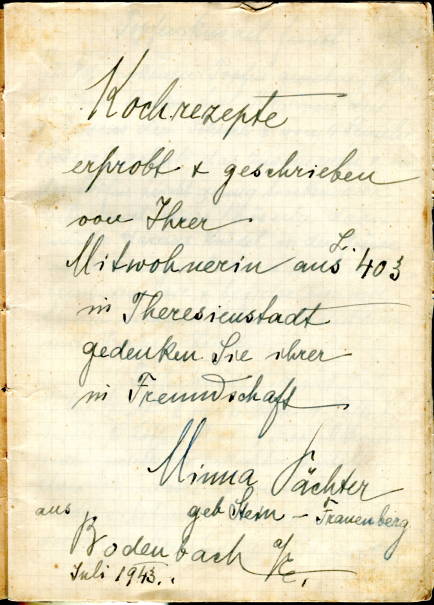 Kochrezepte
erprobt + geschrieben
von Ihrer
Mitwohnerin aus L. 403
in Theresienstadt
gedenken Sie ihrer
in Freundschaft
Minna Pächter
geb Stein – Frauenberg
aus
Bodenbach a/E.
Juli 1943..